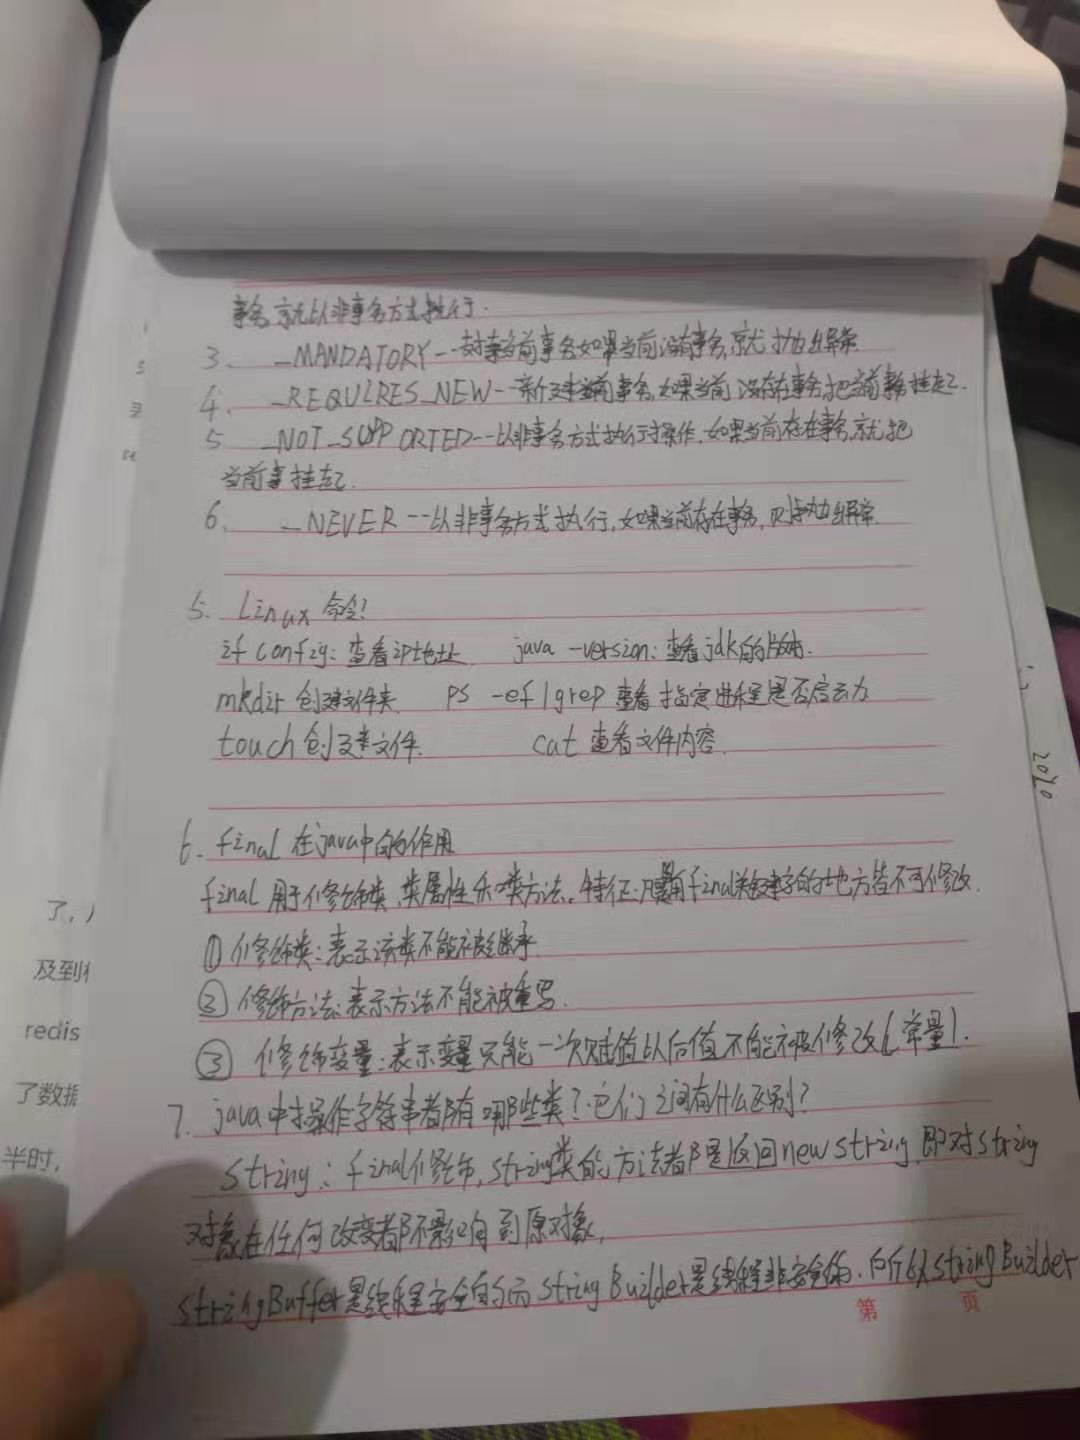 事务,就以非事务方式执行.
3、_MANDATORY--支持当前事务如果当前没有事务,就抛出异常.
4、_REQUIRES_NEW--新建当前事务,如果当前没存在事务,把当前事务挂起.
5 _NOT_SUPPORTED--以非事务方式执行操作,如果当前存在事务,就把
当前事挂起.
6、_NEVER--以非事务方式执行,如果当前存在事务,则抛出异常.
5. Linux 命令!
ifconfig: 查看ip地址 java -version: 查看jdk的版本.
mkdir 创建文件夹 ps -ef|grep 查看指定进程是否启动
touch 创建文件. cat 查看文件内容.
6. final 在java中的作用
final 用于修饰类,类属性和类方法。特征:凡是用final关键字的地方皆不可修改.
① 修饰类:表示该类不能被继承
② 修饰方法:表示方法不能被重写.
③ 修饰变量:表示变量只能一次赋值以后值不能被修改(常量).
7、java中操作字符串都有哪些类?它们之间有什么区别?
String: final修饰, String类的方法都是返回new String. 即对String
对象在任何改变都不影响到原对象,
StringBuffer是线程安全的,而StringBuilder是线程非安全的.所以StringBuilder
第 页
了,
及到
redis
了数据
半时,
2020